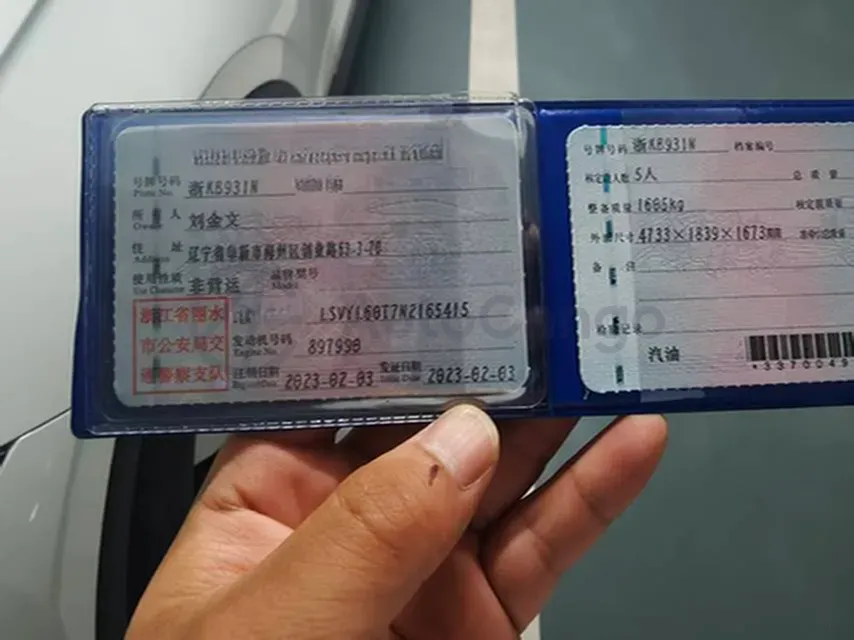 号牌号码 浙KB931N
Plate No.
所有人 刘金文
Owner
住址
Address
使用性质 非营运 品牌型号
Use Character Model
浙江省丽水
市公安局交
通警察支队
LSVYL60T7N2165415
发动机号码 897998
Engine No.
注册日期 2023-02-03 发证日期 2023-02-03
Register Date Issue Date
号牌号码 浙KB931N 档案编号
核定载人数 5人 总质量
整备质量 1685kg 核定载质量
外廓尺寸 4733×1839×1673mm
备注
检验记录
汽油
*3370049